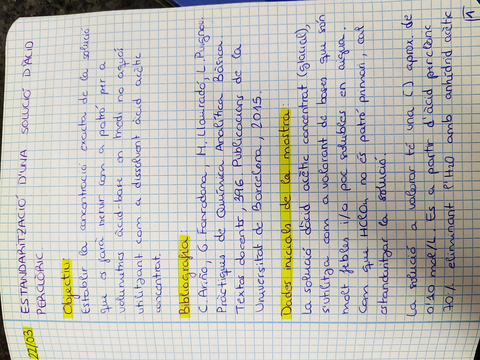 22/03 ESTANDARITZACIÓ D'UNA SOLUCIÓ D'ÀCID
PERCLÒRIC
Objectiu:
Establir la concentració exacta de la solució
que es farà servir com a patró per a
volumetries àcid-base en medi no aquós
utilitzant com a dissolvent àcid acètic
concentrat.
Bibliografia:
C. Ariño, G. Fonrodona, M. Llauradó, L. Puignou.
Pràctiques de Química Analítica Bàsica
Textos docents, 396. Publicacions de la
Universitat de Barcelona, 2015.
Dades inicials de la mostra:
La solució d'àcid acètic concentrat (glacial),
s'utilitza com a valorant de bases que són
molt febles i/o poc solubles en aigua.
Com que HClO₄ no és patró primari, cal
estandaritzar la solució
La solució a valorar té una [ ] aprox. de
0'10 mol/L. Es a partir d'àcid perclòric
70% eliminant l'H₂O amb anhídrid acètic
1